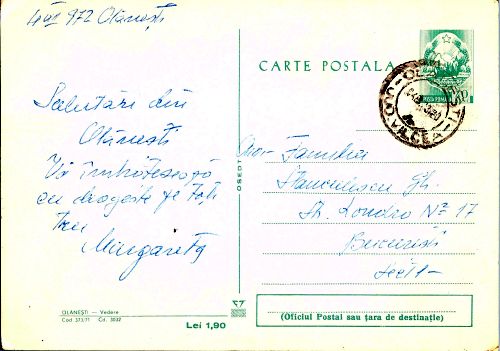 4 VI 972 Olănești
CARTE POSTALA
POSTA ROMANA
VÎLCEA
Salutări din
Olănești
Vă îmbrățișează
cu dragoste pe toți
trei
Margareta
OSETI
Familia
Stănculescu Gh.
Str. Londra Nº 17
București
Sect 1
OLANEŞTI — Vedere
Cod 373/71 Cd. 3032
Lei 1,90
(Oficiul Postal sau țara de destinație)